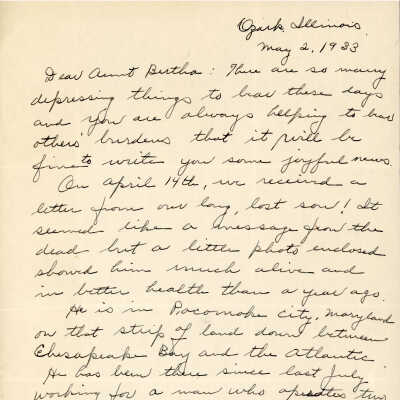 Ozark, Illinois.
May 2, 1933
Dear Aunt Bertha: There are so many
depressing things to bear these days
and you are always helping to bear
others' burdens that it will be
fine to write you some joyful news.
On April 14th, we received a
letter from our long, lost son! It
seemed like a message from the
dead but a little photo enclosed
showed him much alive and
in better health than a year ago.
He is in Pocomoke City, Maryland
on that strip of land down between
Chesapeake Bay and the Atlantic
He has been there since last July
working for a man who operates two